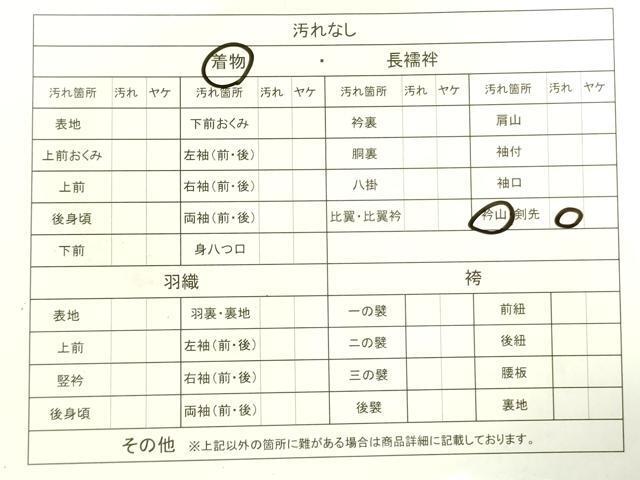 汚れなし
着物 ・ 長襦袢
汚れ箇所 汚れ ヤケ 汚れ箇所 汚れ ヤケ 汚れ箇所 汚れ ヤケ 汚れ箇所 汚れ ヤケ
表地 下前おくみ 衿裏 肩山
上前おくみ 左袖(前・後) 胴裏 袖付
上前 右袖(前・後) 八掛 袖口
後身頃 両袖(前・後) 比翼・比翼衿 衿山 剣先
下前 身八つ口
羽織 袴
表地 羽裏・裏地 一の襞 前紐
上前 左袖(前・後) 二の襞 後紐
竪衿 右袖(前・後) 三の襞 腰板
後身頃 両袖(前・後) 後襞 裏地
その他 ※上記以外の箇所に難がある場合は商品詳細に記載しております。